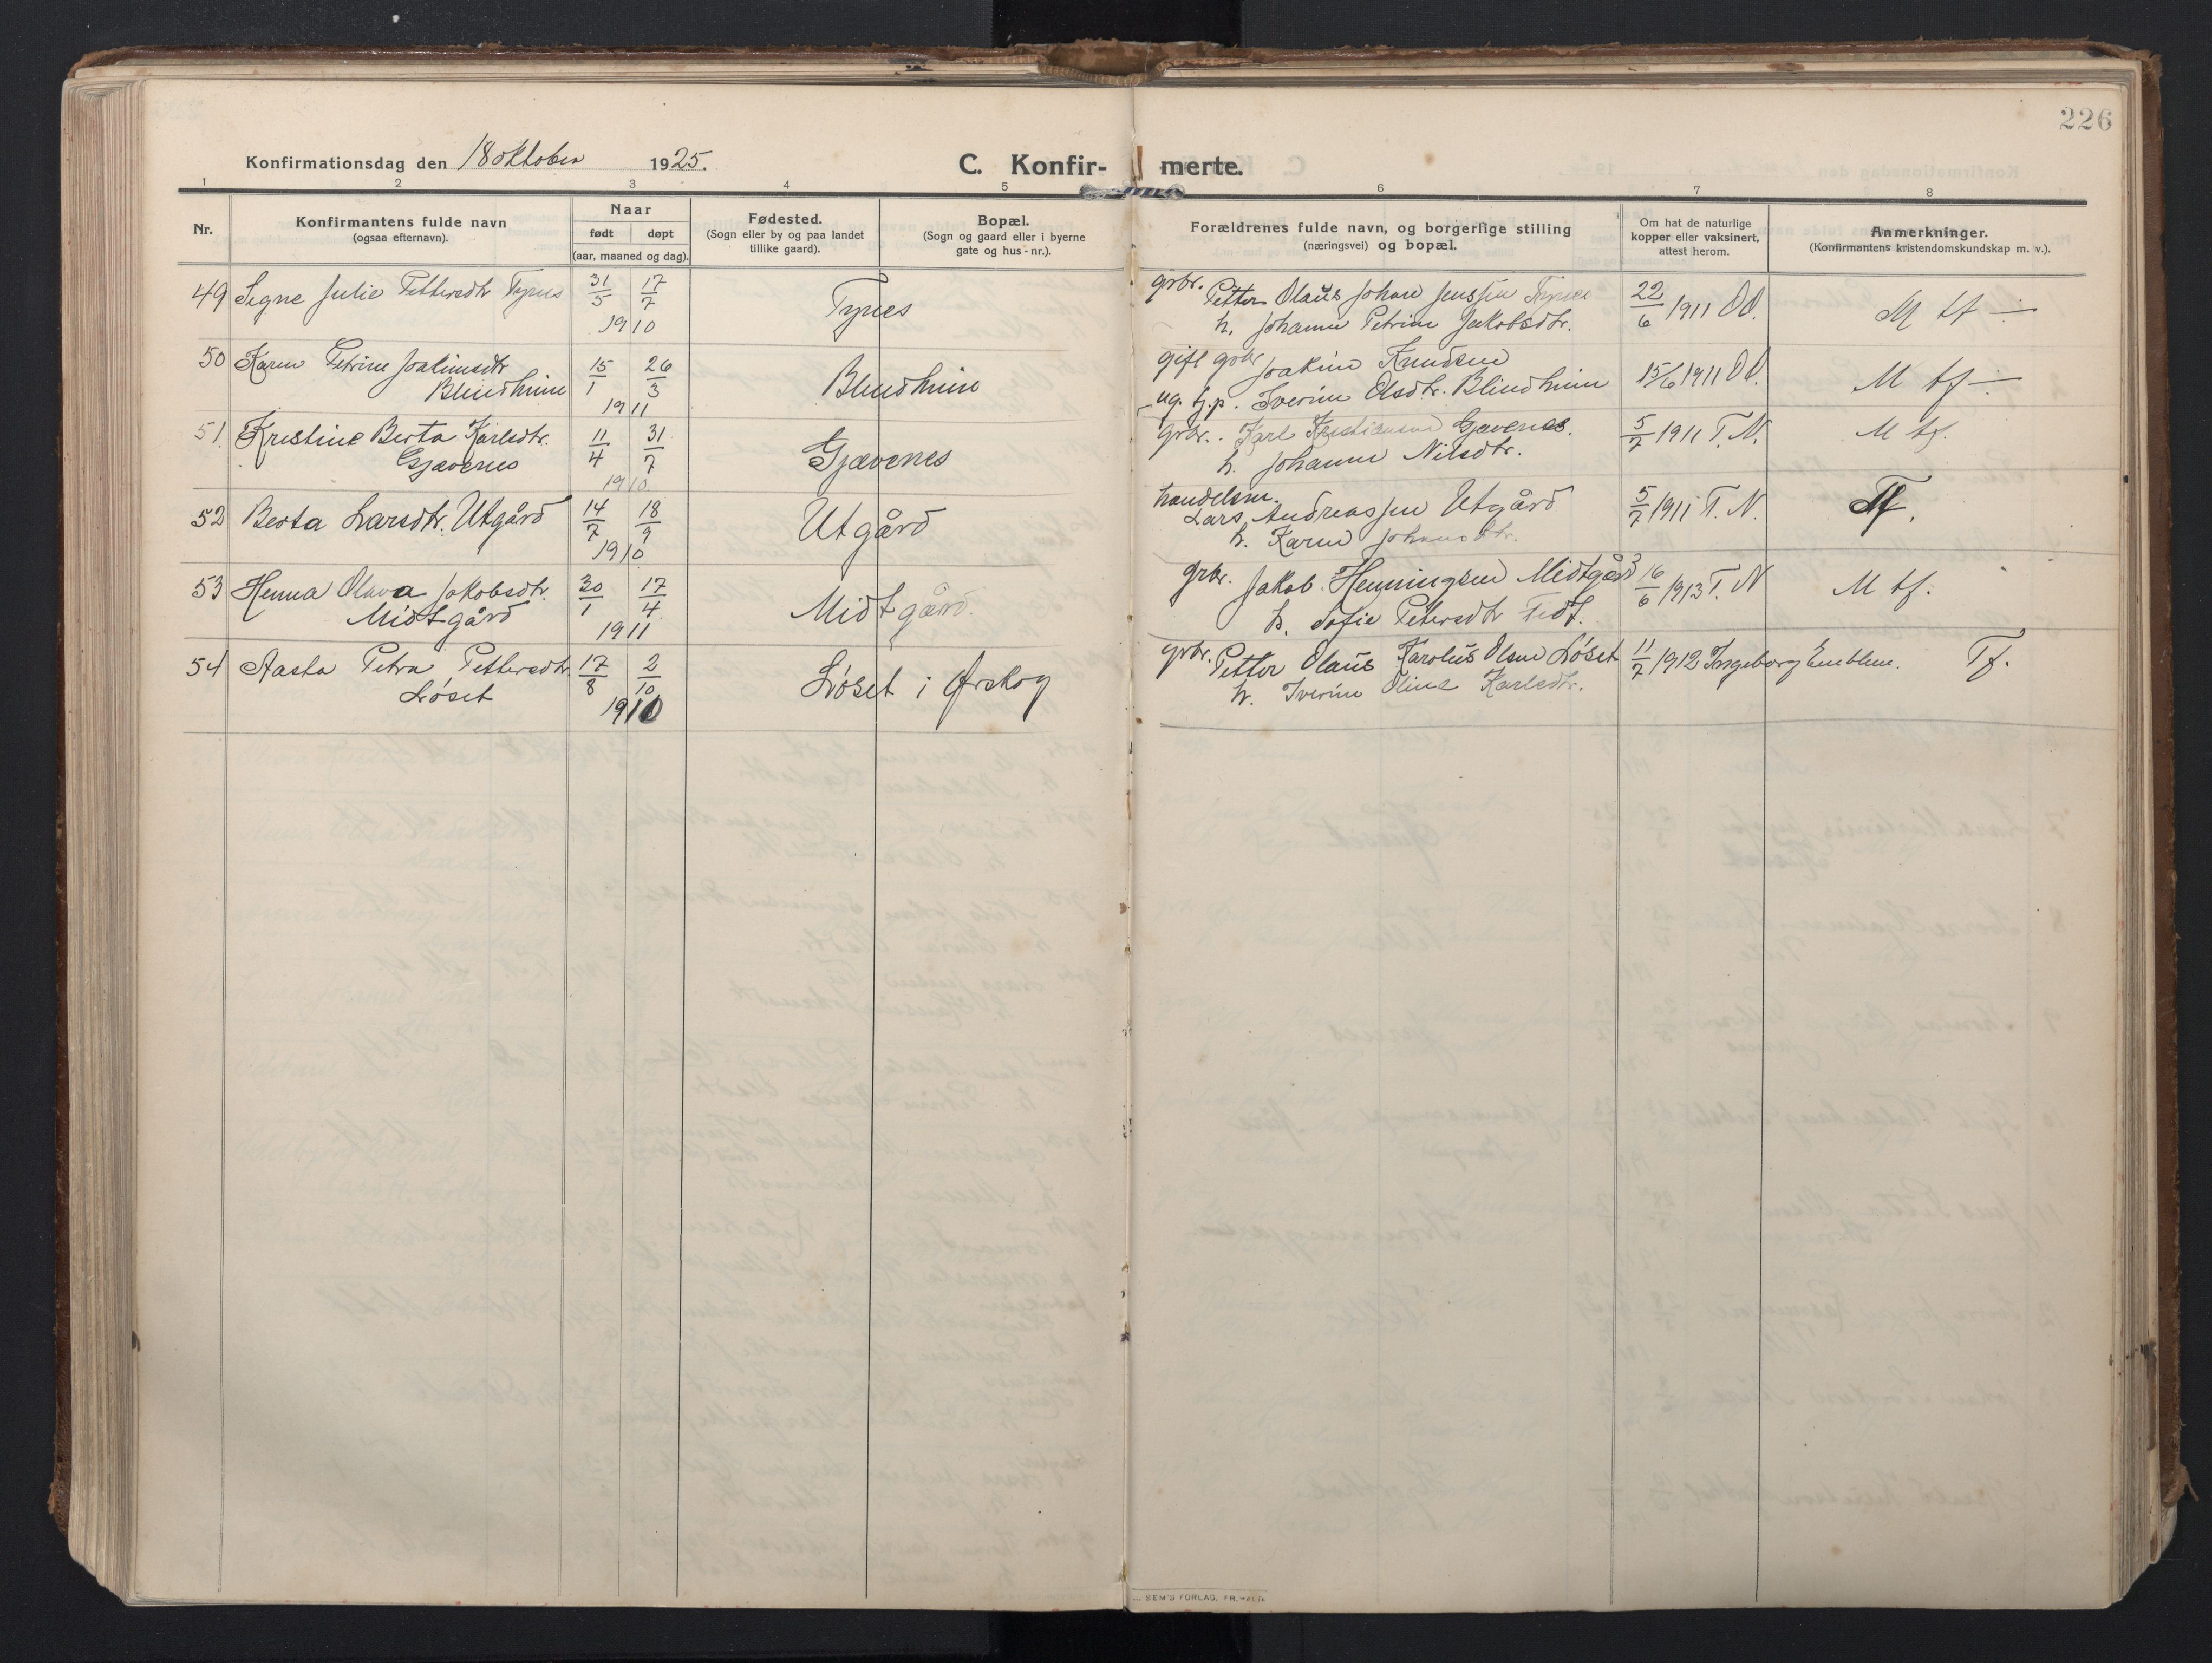 226
Konfirmationsdag den 18 oktober 1925.
C. Konfir- merte.
1 2 3 4 5 6 7 8
Nr.
Konfirmantens fulde navn
(ogsaa efternavn).
Naar
født døpt
(aar, maaned og dag).
Fødested.
(Sogn eller by og paa landet
tillike gaard).
Bopæl.
(Sogn og gaard eller i byerne
gate og hus-nr.).
Forældrenes fulde navn, og borgerlige stilling
(næringsvei) og bopæl.
Om hat de naturlige
kopper eller vaksinert,
attest herom.
Anmerkninger.
(Konfirmantens kristendomskundskap m. v.).
49 Signe Julie Pettersdtr Tynes 31/5 17/7
1910
Tynes
grbr. Petter Olaus Johan Jenssen Tynes
h. Johanne Petrine Jakobsdtr.
22/6 1911 OO.
M tf
50 Karen Petrine Joakimsdtr
Blindheim
15/1 26/3
1911
Blindheim
gift grbr Joakim Knudsen
ug. tj.p. Iverine Olsdtr. Blindheim
15/6 1911 OO.
M tf
51. Kristine Berta Karlsdtr.
Gjævenes
11/4 31/7
1910
Gjævenes
grbr. Karl Kristiansen Gjævenes.
h. Johanne Nilsdtr.
5/7 1911 T. N.
M tf.
52 Berta Larsdtr. Utgård 14/7 18/9
1910
Utgård
handelsm.
Lars Andreassen Utgård
h. Karen Johansdtr.
5/7 1911 T. N.
Tf.
53 Henna Olava Jakobsdtr.
Midtgård
30/1 17/4
1911
Midtgård.
grbr. Jakob Henningsen Midtgård
h. Sofie Petersdtr
16/6 1913 T. N
M tf.
54 Aasta Petra Pettersdtr.
Løset
17/8 2/10
1910
Løset i Ørskog
grbr. Petter Olaus Karolus Olsen Løset
h. Iverine Oline Karlsdtr.
11/7 1912 Ingeborg Emblem.
Tf.
SEM'S FORLAG, FR.